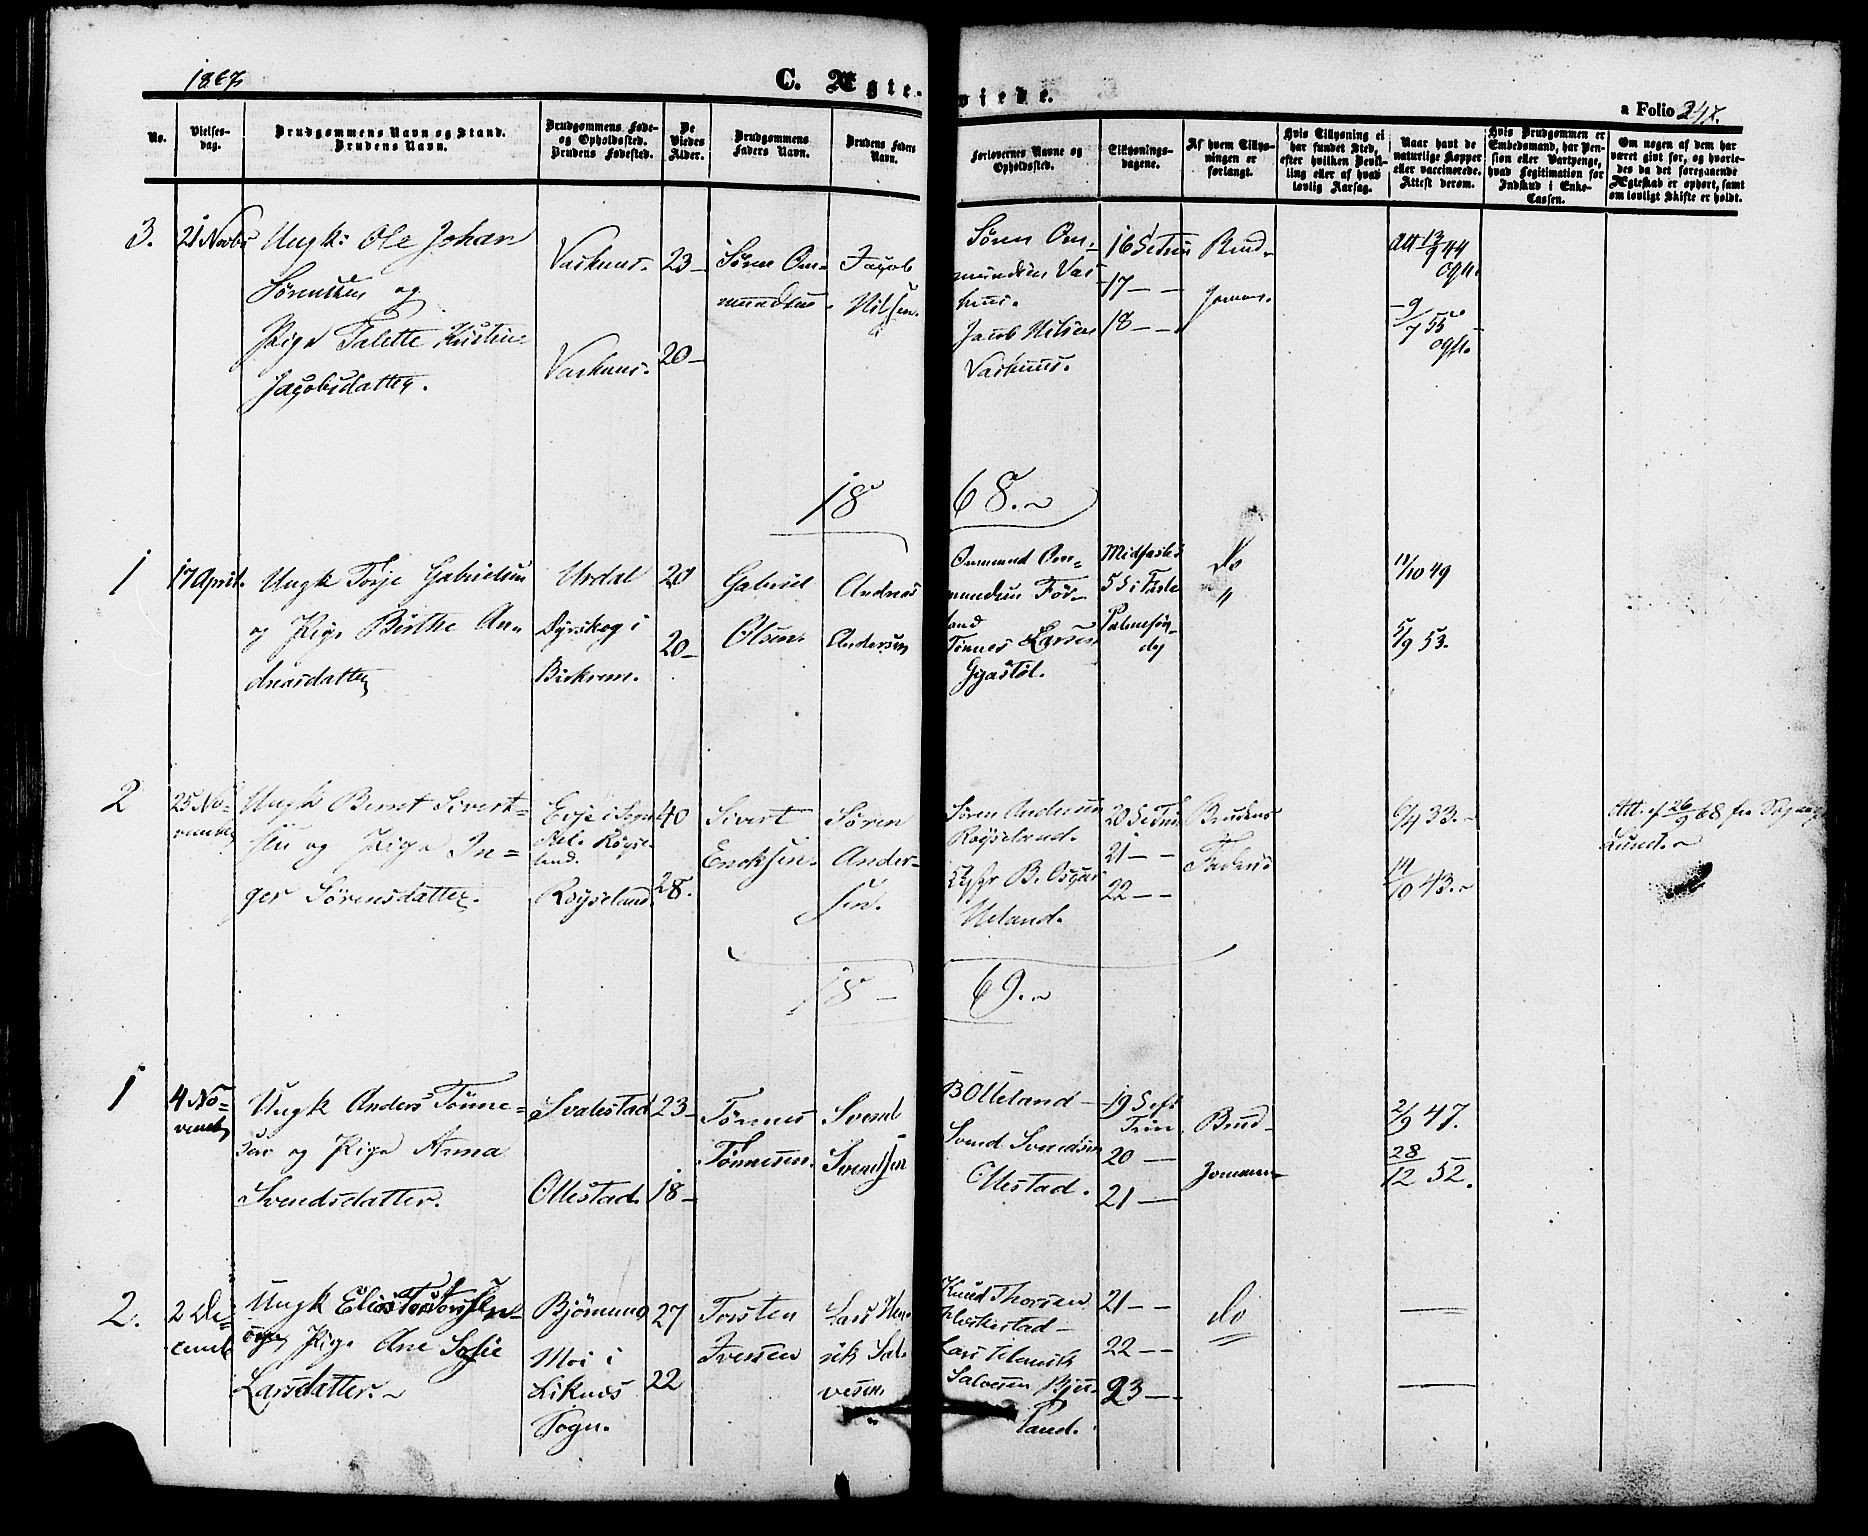 1867
C. Ægte-
viede.
a Folio 247.
No.
Vielses-
dag.
Brudgommens Navn og Stand.
Brudens Navn.
Brudgommens Føde-
og Opholdssted.
Brudens Fødested.
De
Viedes
Alder.
Brudgommens
Faders Navn.
Brudens Faders
Navn.
Forlovernes Navne og
Opholdssted.
Tillysnings-
dagene.
Af hvem Tillys-
ningen er
forlangt.
Hvis Tillysning ei
har fundet Sted,
efter hvilken Bevil-
ling eller af hvad
lovlig Aarsag.
Naar havt de
naturlige Kopper
eller vaccinerede.
Attest derom.
Hvis Brudgommen er
Embedsmand, har Pen-
sion eller Vartpenge,
hvad Legitimation for
Indskud i Enke-
Cassen.
Om nogen af dem har
været givt før, og hvorle-
des da det foregaaende
Ægteskab er ophørt, samt
om lovligt Skifte er holdt.
3.
21 Novbr
Ungk: Ole Johan
Sørensen og
Pige Talette Kristine
Jacobsdatter.
23-
20-
Søren Om-
mundsen
Jacob
Nilsen.
Søren Om-
mundsen Vas-
huus.
Jacob Nilsen
Vashuus.
16 S e Trin
17 - -
18 - -
Brud-
1868.
1
17 April.
Ungk Torje Gabrielsen
og Pige Birthe An-
dreasdatter
Urdal
Dyrskog i
Birkrem.
20
20-
Gabriel
Olsen.
Andreas
Andersen
Ommund Om-
mundsen Før-
land
Tønnes Larsen
Gyastøl.
Midfaste
5 S i Faste
Palmesøn-
dg
do
"
11/10 49
5/9 53.
2
25 No-
vember
Ungk Bernt Sivert-
sen og Pige In-
ger Sørensdatter.
Røyseland.
40
28.
Sivert
Søren
Ander-
sen.
Søren Andersen
Røyseland.
Ueland.
20 S e Trin
21 - -
22 - -
Brudens
Faders
6/4 33.-
11/10 43.-
Att. af 26/9 68 fra Sogneprest
Lund.
1869.
1
4 No-
vemb
Ungk Anders Tønne-
sen og Pige Anna
Svendsdatter.
Svalestad
Ollestad.
23-
18-
Tønnes
Tønnesen.
Svend
Svendsen
B Olleland -
Svend Svendsen
Ollestad.
19 S. ef.
Trin
20 -
21 -
Brud-
2/9 47.
28/12 52.
2.
2 De-
cemb
Ungk Elias Torstensen
og Pige Ane Sofie
Larsdatter.
Moi i
Liknes
Sogn.
27
22
Torsten
Iversen
Lars Hen-
rik Sal-
vesen
Knud Thorsen
Lars Henrik
Salvesen
land.
21 - -
22 - -
23 - -
do